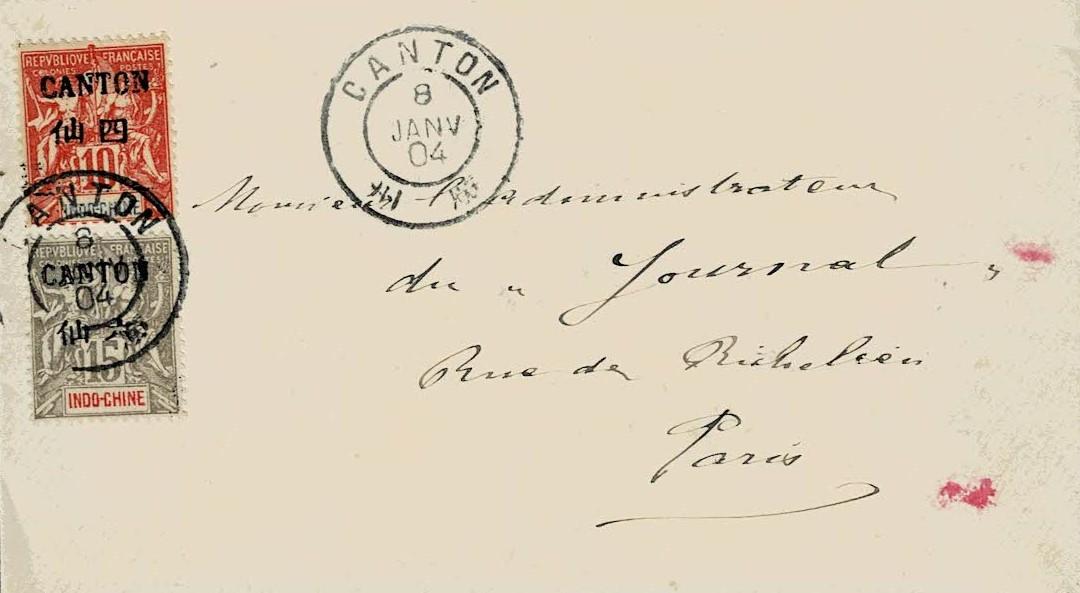 REPVBLIQVE FRANÇAISE
COLONIES POSTES
CANTON
仙四
10
INDO-CHINE
CANTON
8
04
REPVBLIQVE FRANÇAISE
CANTON
仙六
15
INDO-CHINE
CANTON
8
JANV
04
Monsieur l'Administrateur
du " Journal "
Rue de Richelieu
Paris